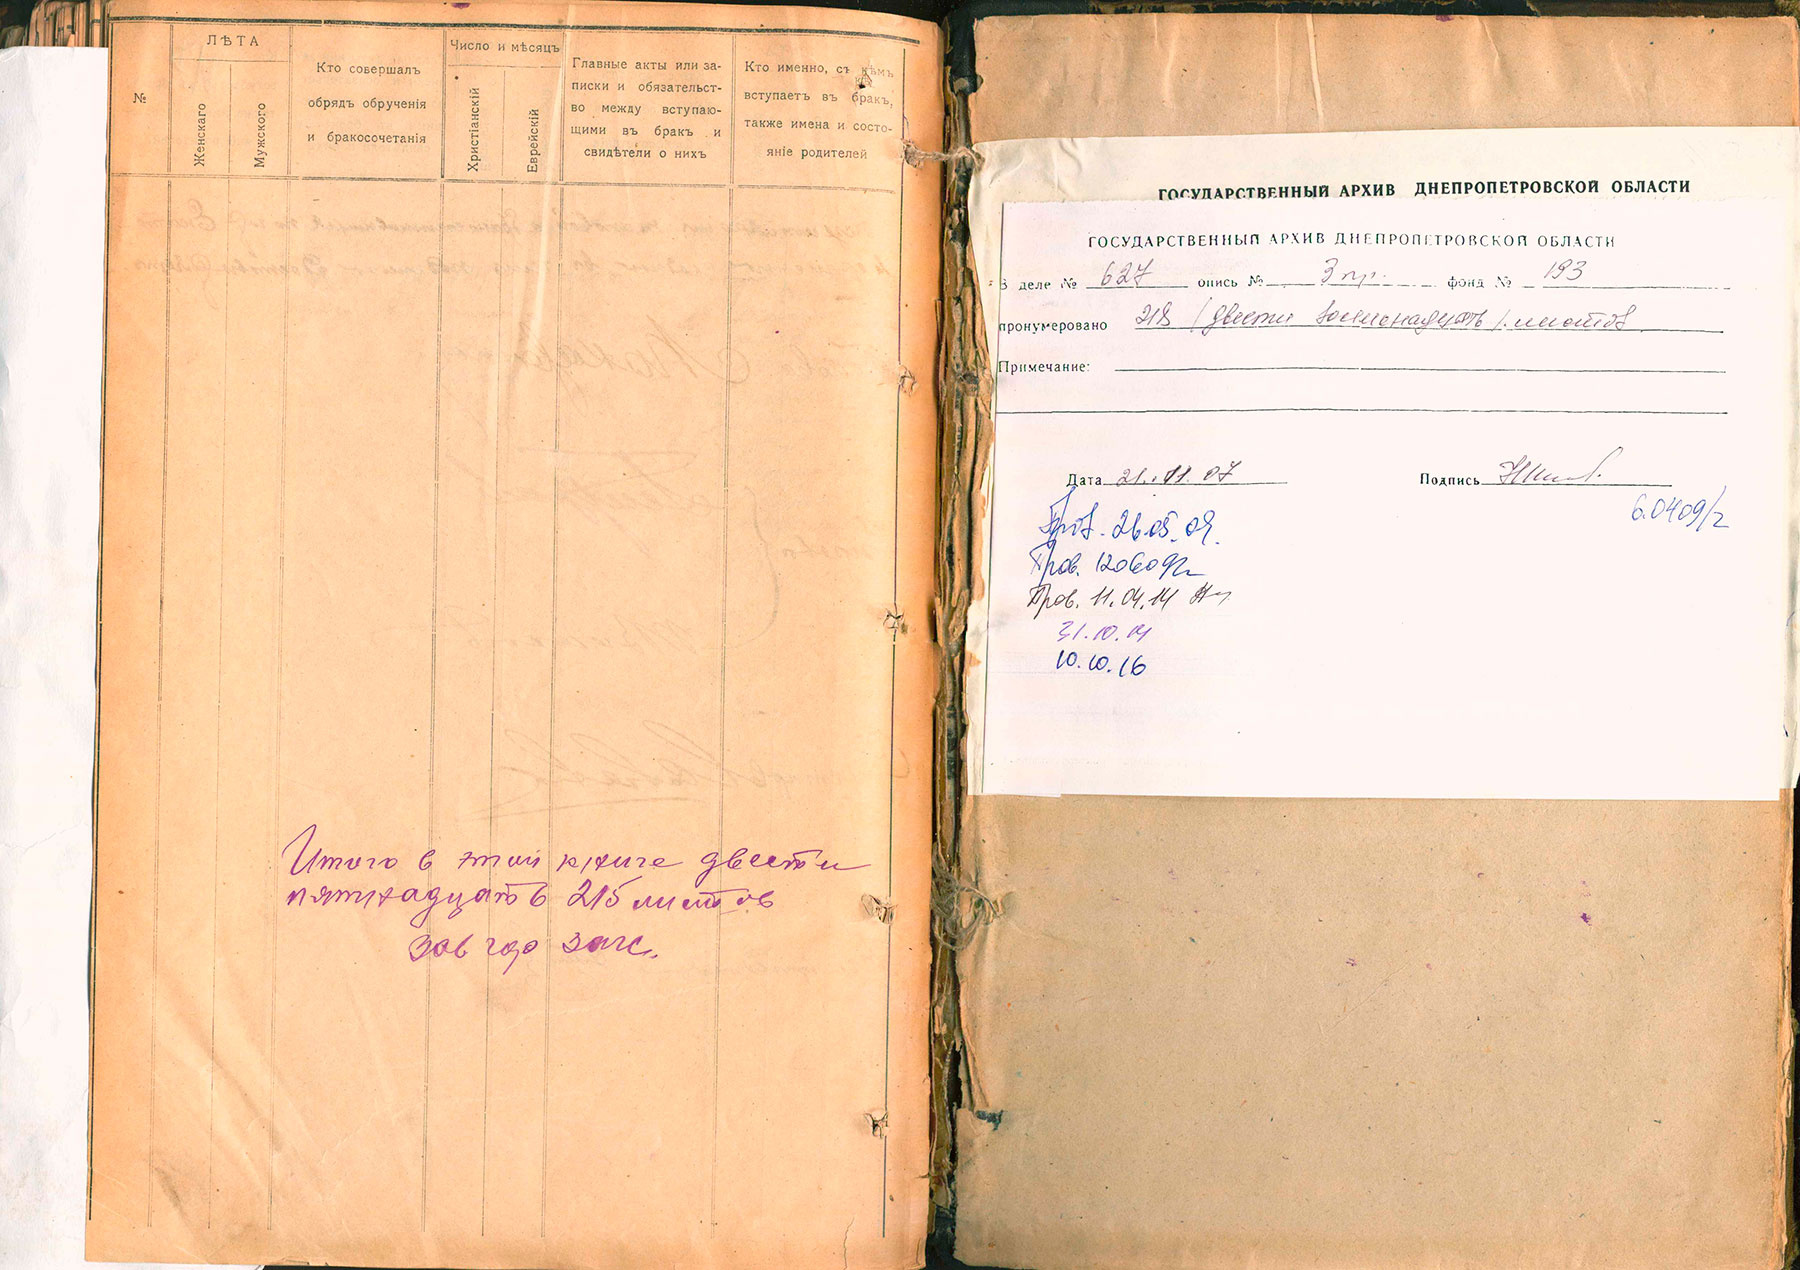 №
ЛѢТА
Женскаго
Мужского
Кто совершалъ
обрядъ обрученія
и бракосочетанія
Число и мѣсяцъ
Христіанскій
Еврейскій
Главные акты или за-
писки и обязательст-
во между вступаю-
щими въ бракъ и
свидѣтели о нихъ
Кто именно, съ кѣмъ
вступаетъ въ бракъ,
также имена и состо-
яніе родителей
Итого в этой книге двести
пятнадцать 215 листов
Зав гор загс.
ГОСУДАРСТВЕННЫЙ АРХИВ ДНЕПРОПЕТРОВСКОЙ ОБЛАСТИ
ГОСУДАРСТВЕННЫЙ АРХИВ ДНЕПРОПЕТРОВСКОЙ ОБЛАСТИ
В деле № 627 опись № 3 пр. фонд № 193
пронумеровано 218 (двести восемнадцать) листов
Примечание:
Дата 21.11.07 Подпись
6.04 09/
Пров. 26.05.09.
Пров. 120609
Пров. 11.04.14
31.10.14
10.10.16